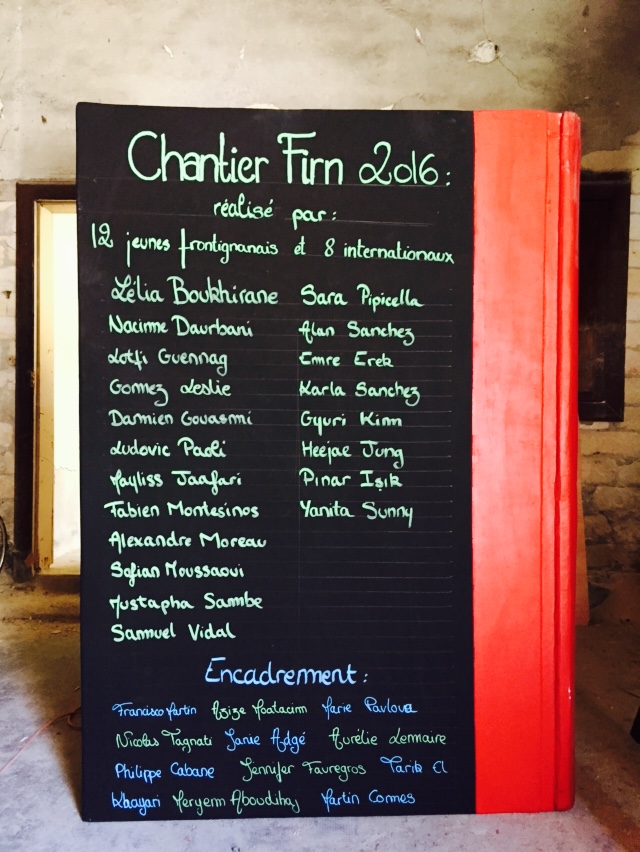 Chantier Firn 2016 :
réalisé par :
12 jeunes frontignanais et 8 internationaux
Lélia Boukhirane
Nacimme Daurbani
Lotfi Guennag
Gomez Leslie
Damien Gouasmi
Ludovic Paoli
Mayliss Jaafari
Fabien Montesinos
Alexandre Moreau
Sofian Moussaoui
Mustapha Sambe
Samuel Vidal
Sara Pipicella
Alan Sanchez
Emre Erek
Karla Sanchez
Gyuri Kim
Heejae Jung
Pınar Işık
Yanita Sunny
Encadrement :
Francisco Martin Azize Moatacim Marie Pavlova
Nicolas Tagnati Janie Adgé Aurélie Lemaire
Philippe Cabane Jennifer Fauregros Tarik El
Khayari Meryem Martin Cormes